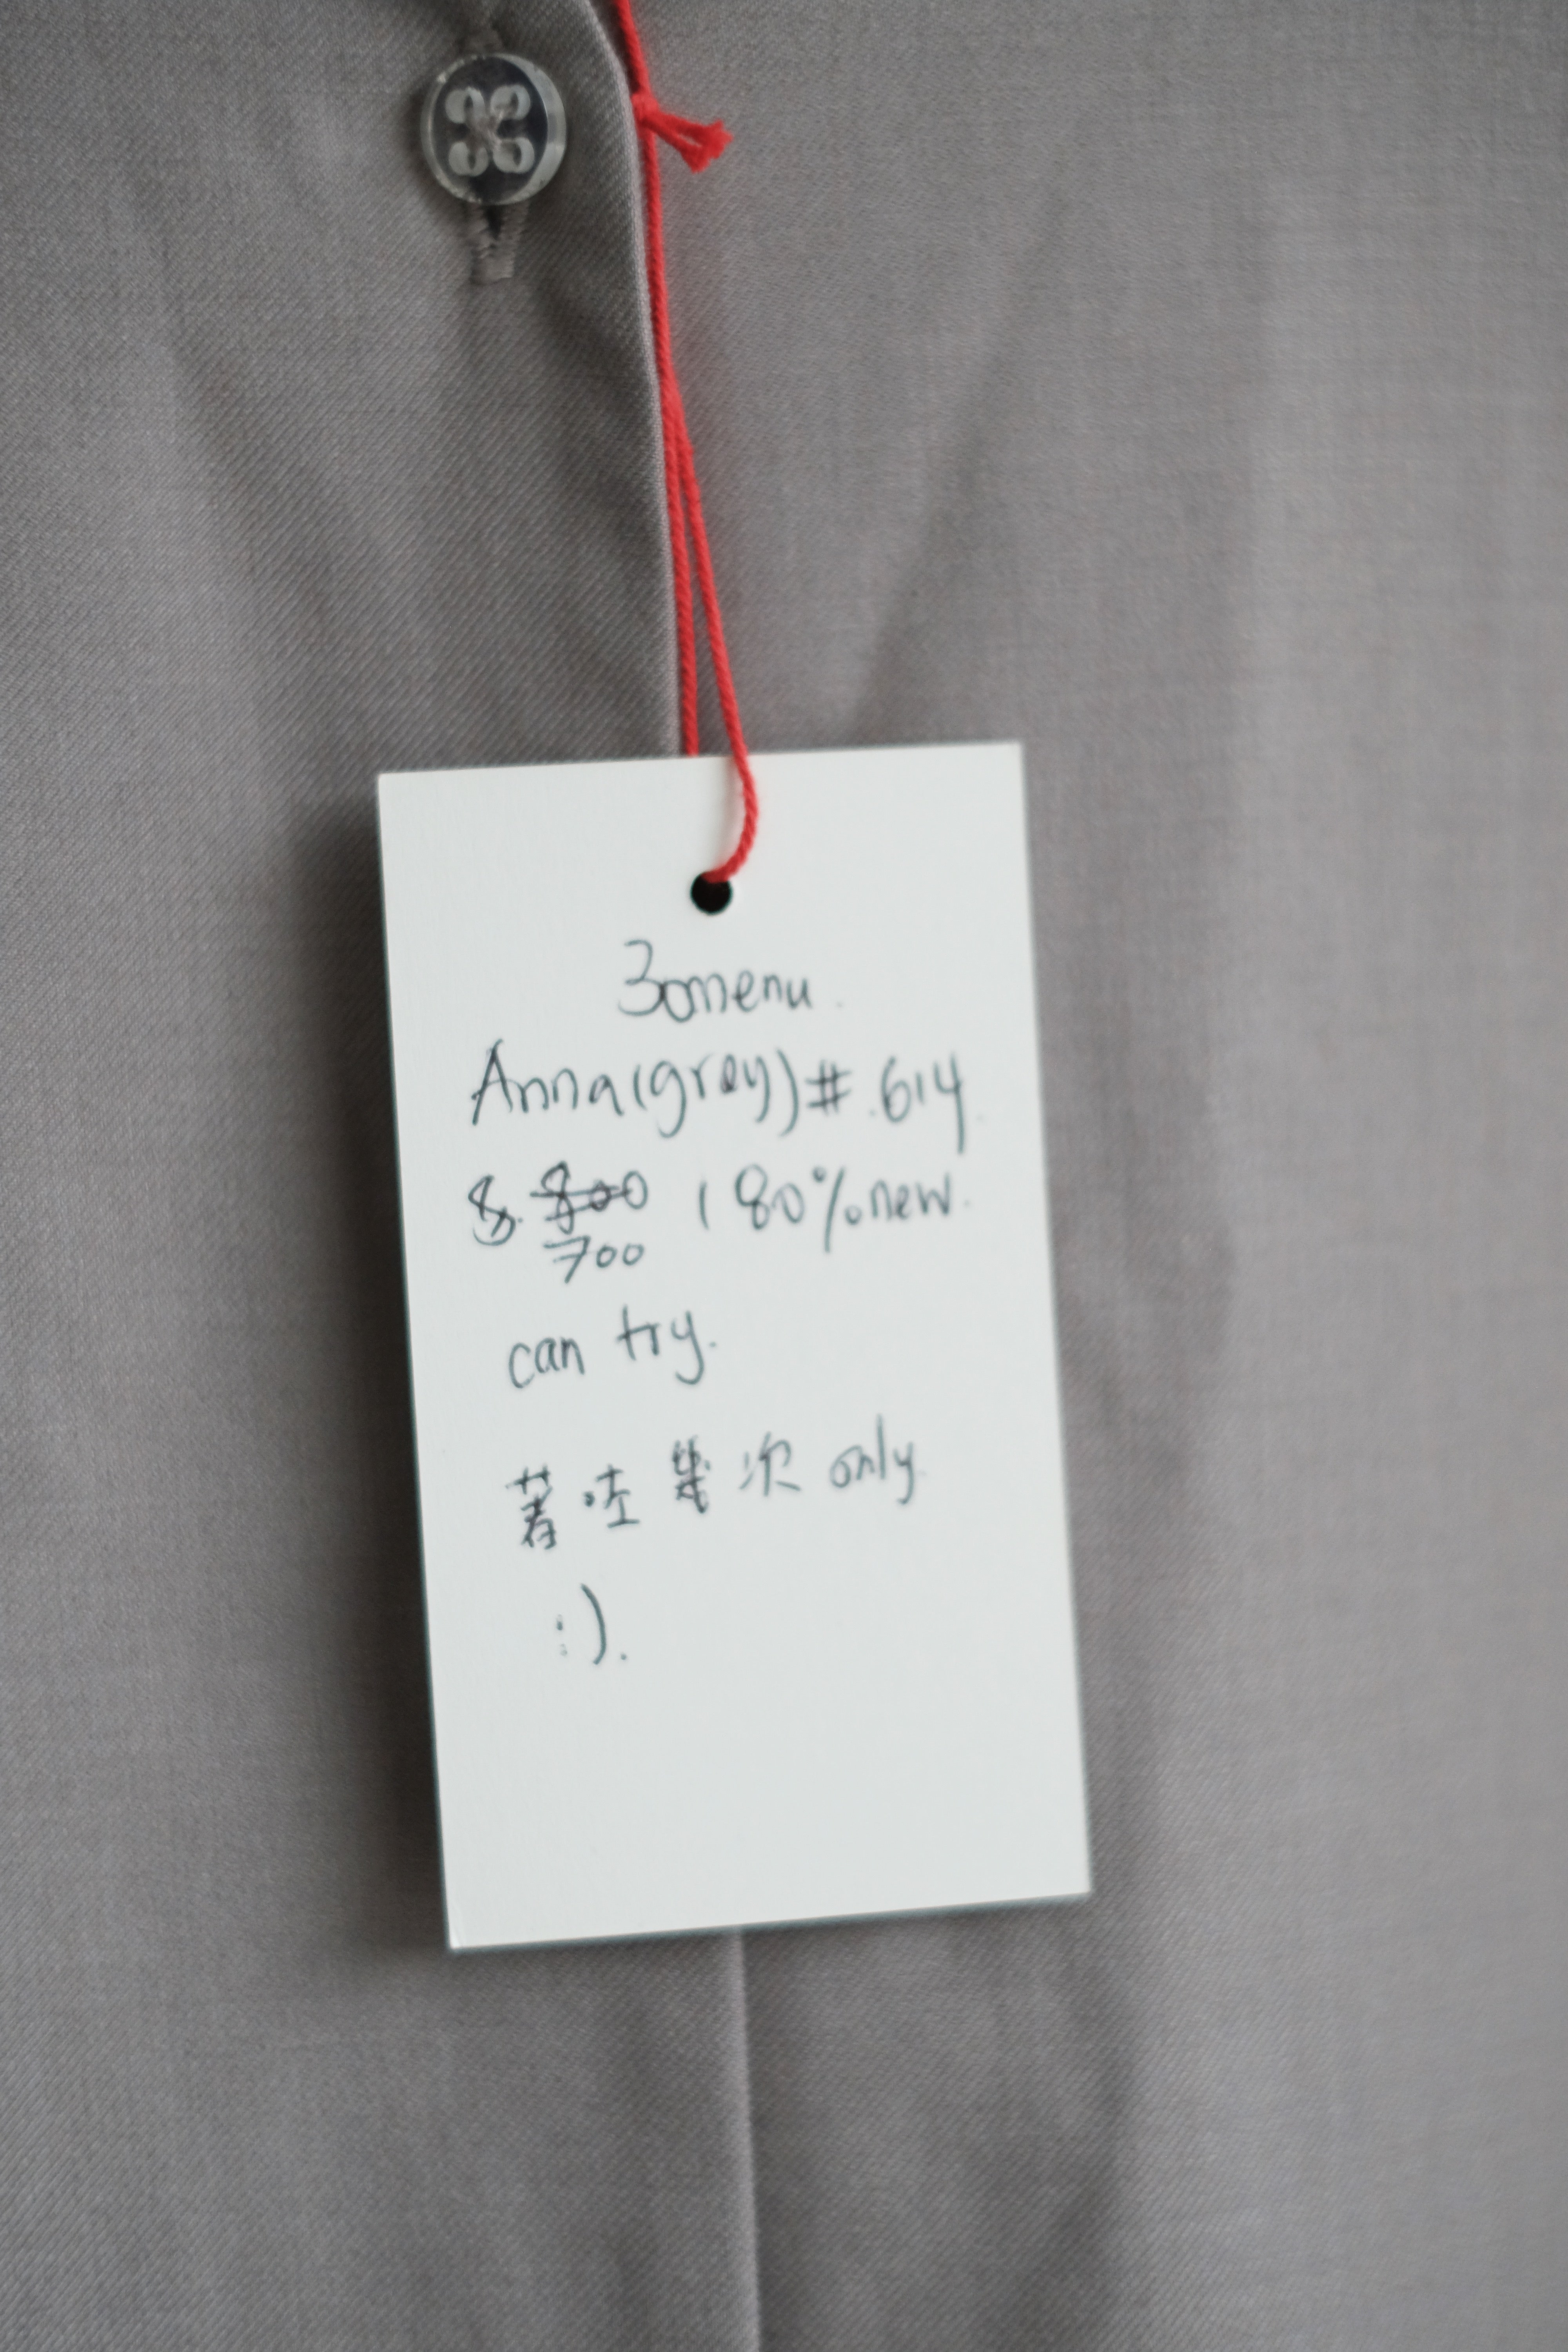 3omenu.
Anna(grey)#.614.
$ 800 (80%new.
700
can try.
著咗幾次 only
:).